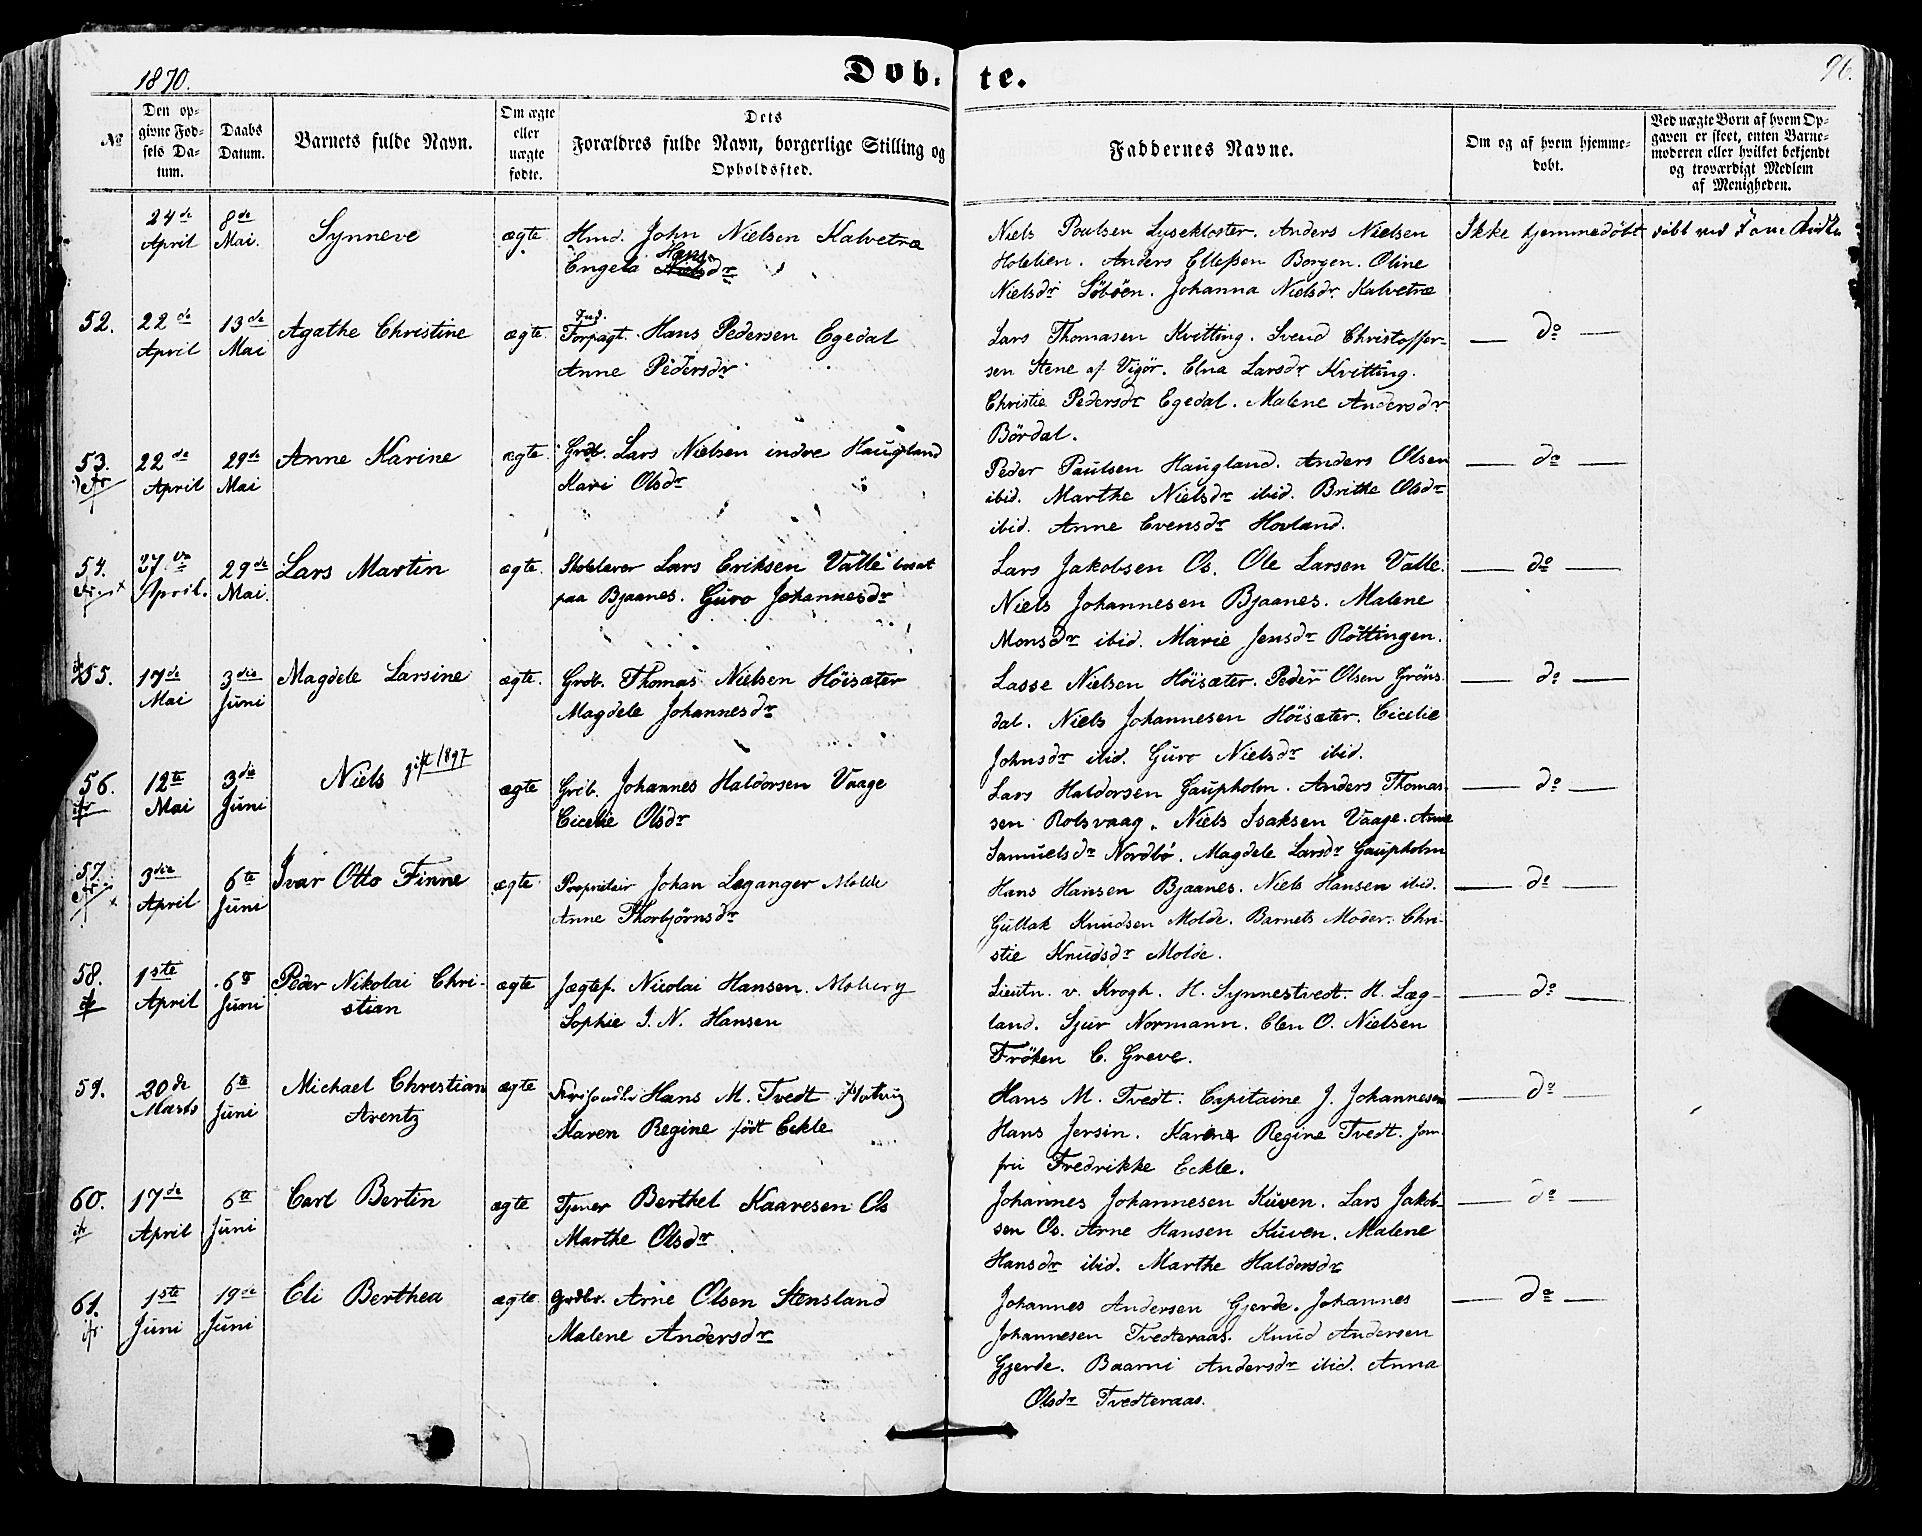 1870.
Døb-
te.
96.
No
Den op-
givne Fød-
sels Da-
tum.
Daabs
Datum.
Barnets fulde Navn.
Om ægte
eller
uægte
fødte.
Dets
Forældres fulde Navn, borgerlige Stilling og
Opholdssted.
Faddernes Navne.
Om og af hvem hjemme-
døbt.
Ved uægte Børn af hvem Op-
gaven er skeet, enten Barne-
moderen eller hvilket bekjendt
og troværdigt Medlem
af Menigheden.
24de April
8de Mai.
Synneve
ægte
Hmd. John Nielsen Kalvetræ
Engela Hansdr
Niels Poulsen Lysekloster. Anders Nielsen
Holelien. Anders Ellefsen Borgen. Oline
Nielsdr Söböen. Johanna Nielsdr. Kalvetræ
Ikke hjemmedöbt döbt ved Fane Kirke
52.
22de April
13de Mai
Agathe Christine
ægte
Forpagt. Hans Pedersen Egedal
Anne Pedersdr
Lars Thomasen Kvitting. Svend Christoffer-
sen Stene af Vigör. Elna Larsdr Kvitting.
Christie Pedersdr Egedal. Malene Andersdr
Bördal.
— do —
53.
22de April
29de Mai
Anne Karine
ægte.
Grdb. Lars Nielsen indre Haugland
Kari Olsdr
Peder Paulsen Haugland. Anders Olsen
ibid. Marthe Nielsdr ibid. Brithe Olsdr
ibid. Anne Evensdr Hovland.
— do —
54.
27de April.
29de Mai.
Lars Martin
ægte.
Skolelærer Lars Eriksen Valle bosat
paa Bjaanes. Guro Johannesdr
Lars Jakobsen Os. Ole Larsen Valle.
Niels Johannesen Bjaanes. Malene
Monsdr ibid. Marie Jensdr Röttingen.
— do —
55.
17de Mai
3die Juni
Magdele Larsine
ægte.
Grdb. Thomas Nielsen Höisæter
Magdele Johannesdr
Lasse Nielsen Höisæter. Peder Olsen Gröns-
dal. Niels Johannesen Höisæter. Cicelie
Johnsdr ibid. Guro Nielsdr ibid.
— do —
56.
12te Mai
3die Juni
Niels gift 1897
ægte
Grdb. Johannes Haldorsen Vaage
Cicelie Olsdr
Lars Haldorsen Gaupholm. Anders Thomas-
sen Rolsvaag. Niels Isaksen Vaage. Anne
Samuelsdr Nordbö. Magdele Larsdr Gaupholm
— do —
57.
3die April
6te Juni
Ivar Otto Finne
ægte
Proprietair Johan Leganger Molde
Anne Thorbjörnsdr
Hans Hansen Bjaanes. Niels Hansen ibid.
Gullak Knudsen Molde. Barnets Moder. Chri-
stie Knudsdr Molde.
— do —
58.
1ste April
6te Juni
Peder Nikolai Chri-
stian
ægte
Jægtef. Nicolai Hansen. Moberg
Sophie J. N. Hansen
Lieutn. v. Krogh. H. Synnestvedt. H. Læg-
land. Sjur Normann. Elen O. Nielsen
Fröken C. Greve.
— do —
59.
30de Marts
6te Juni
Michael Christian
Arentz
ægte
Hans M. Tvedt
Karen Regine födt Eckle
Hans M. Tvedt. Capitaine J. Johannesen
Hans Jersin. Karen Regine Tvedt. Jom-
fru Fredrikke Eckle.
— do —
60.
17de April
6te Juni
Carl Bertin
ægte
Tjener Berthel Kaaresen Os
Marthe Olsdr
Johannes Johannesen Kuven. Lars Jakob-
sen Os. Arne Hansen Kuven. Malene
Hansdr ibid. Marthe Haldorsdr
— do —
61.
1ste Juni
19de Juni
Eli Berthea
ægte
Grdbr. Arne Olsen Stensland
Malene Andersdr
Johannes Andersen Gjerde. Johannes
Johannesen Tvedteraas. Knud Andersen
Gjerde. Baarni Andersdr ibid. Anna
Olsdr Tvedteraas.
— do —